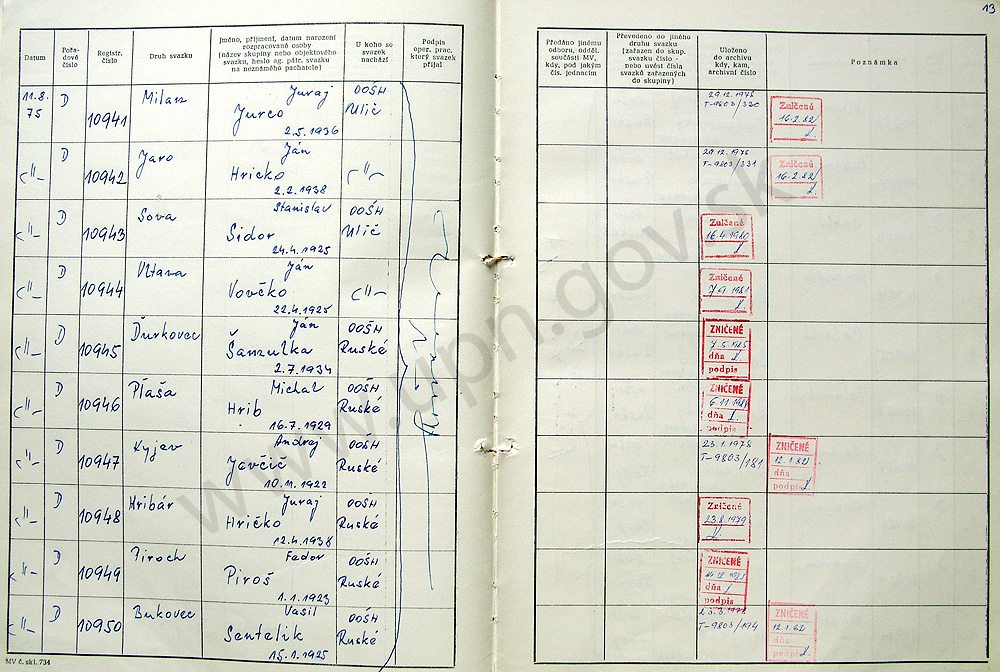 13
Datum
Pořa-
dové
číslo
Registr.
číslo
Druh svazku
Jméno, příjmení, datum narození
rozpracované osoby
(název skupiny nebo objektového
svazku, heslo ag. pátr. svazku
na neznámého pachatele)
U koho se
svazek
nachází
Podpis
oper. prac.
který svazek
přijal
Předáno jinému
odboru, odděl.
součásti MV,
kdy, pod jakým
čís. jednacím
Převedeno do jiného
druhu svazku
(zařazen do skup.
svazku číslo -
nebo uvést čísla
svazků zařazených
do skupiny)
Uloženo
do archivu
kdy, kam,
archivní číslo
Poznámka
11.8.
75
D
10941
Milan
Juraj
Jurco
2.5.1936
OOŠH
Ulič
29.12.1975
T-9803/330
Zničené
16.2.82
D
10942
Jaro
Ján
Hricko
2.2.1938
29.12.1975
T-9803/331
Zničené
16.2.82
D
10943
Sova
Stanislav
Sidor
24.4.1925
OOŠH
Ulič
Zničené
16.4.1980
D
10944
Vltava
Ján
Vovčko
22.4.1925
Zničené
D
10945
Ďurkovec
Ján
Šanzulka
2.7.1934
OOŠH
Ruské
ZNIČENÉ
7.5.1985
dňa
podpis
D
10946
Pľaša
Michal
Hrib
16.7.1929
OOŠH
Ruské
ZNIČENÉ
dňa
podpis
D
10947
Kyjev
Andrej
Javčič
10.11.1922
OOŠH
Ruské
23.1.1978
T-9803/181
ZNIČENÉ
12.1.82
dňa
podpis
D
10948
Hribár
Juraj
Hričko
12.4.1938
OOŠH
Ruské
Zničené
23.8.1979
D
10949
Piroch
Fedor
Piroš
1.1.1923
OOŠH
Ruské
ZNIČENÉ
dňa
podpis
D
10950
Bukovec
Vasil
Sentelik
15.1.1925
OOŠH
Ruské
T-9803/194
ZNIČENÉ
12.1.82
dňa
podpis
MV č. skl. 734
www.upn.gov.sk